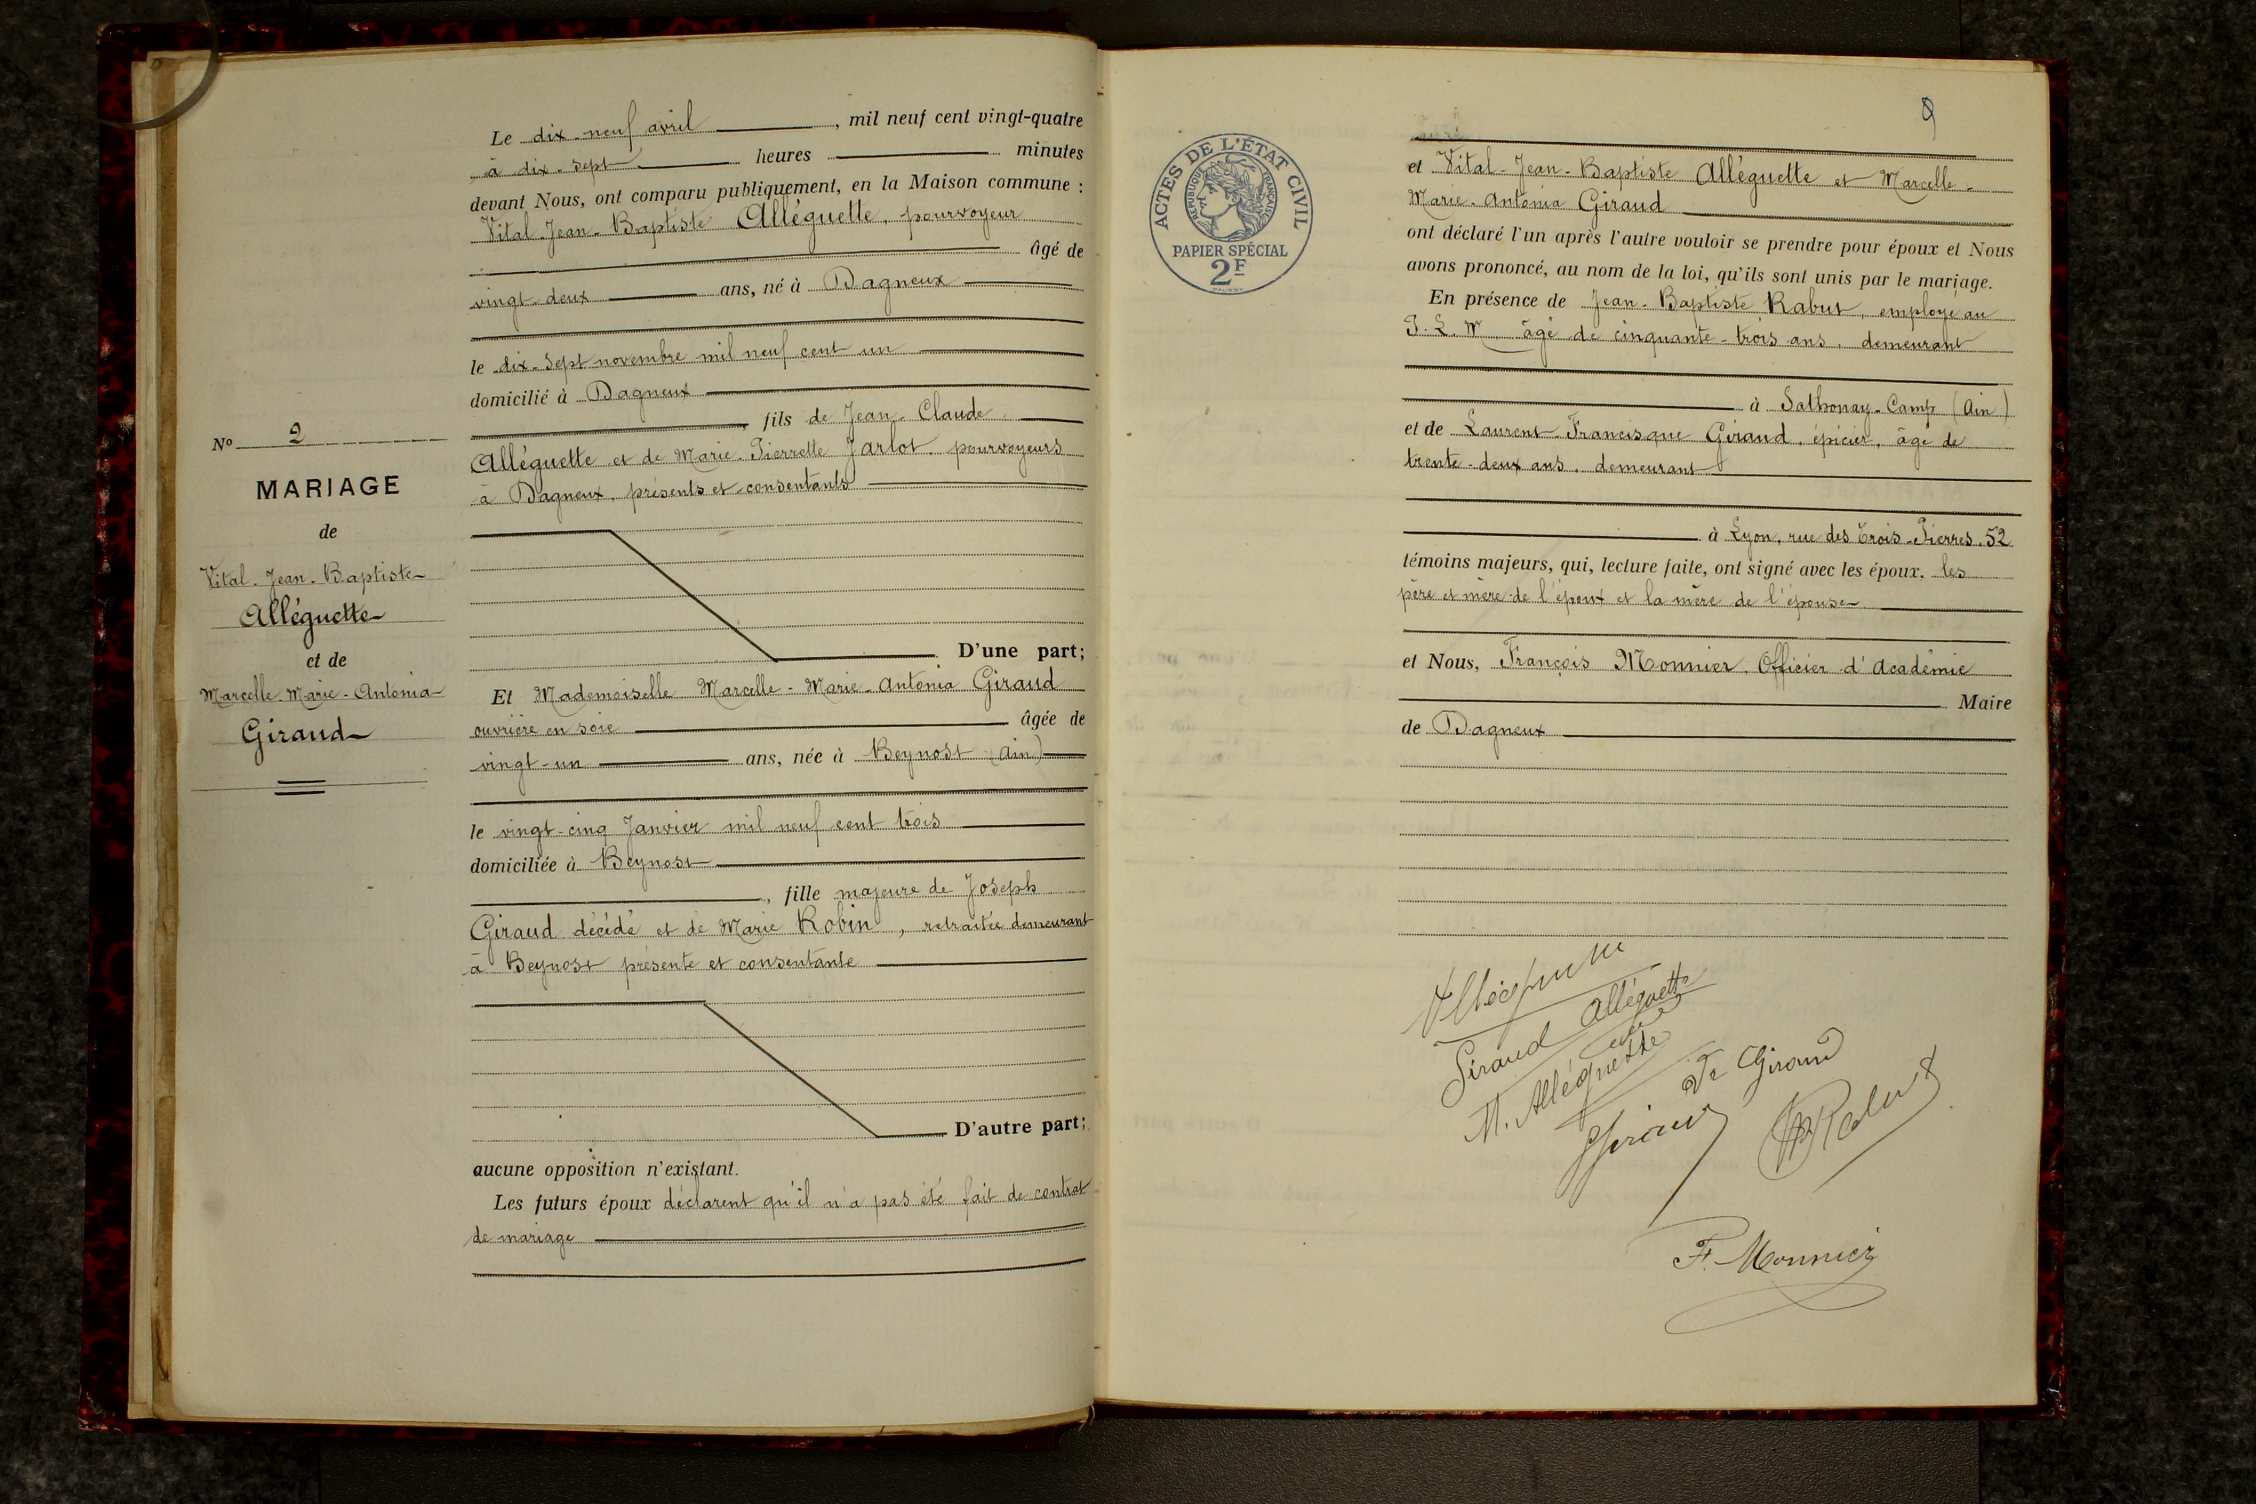 N° 2
MARIAGE
de
Vital-Jean-Baptiste
Alléguette
et de
Marcelle-Marie-Antonia
Giraud
Le dix-neuf avril, mil neuf cent vingt-quatre
à dix-sept heures minutes
devant Nous, ont comparu publiquement, en la Maison commune :
Vital-Jean-Baptiste Alléguette, pourvoyeur
âgé de
vingt-deux ans, né à Dagneux
le dix-sept novembre mil neuf cent un
domicilié à Dagneux
, fils de Jean-Claude
Alléguette et de Marie-Pierrette Jarlot, pourvoyeurs
à Dagneux, présents et consentants
D'une part;
Et Mademoiselle Marcelle-Marie-Antonia Giraud
ouvrière en soie âgée de
vingt-un ans, née à Beynost (Ain)
le vingt-cinq Janvier mil neuf cent trois
domiciliée à Beynost
, fille majeure de Joseph
Giraud décédé et de Marie Robin, retraitée demeurant
à Beynost présente et consentante
D'autre part;
aucune opposition n'existant.
Les futurs époux déclarent qu'il n'a pas été fait de contrat
de mariage
9
ACTES DE L'ÉTAT CIVIL
RÉPUBLIQUE FRANÇAISE
PAPIER SPÉCIAL
2F
et Vital-Jean-Baptiste Alléguette et Marcelle-
Marie-Antonia Giraud
ont déclaré l'un après l'autre vouloir se prendre pour époux et Nous
avons prononcé, au nom de la loi, qu'ils sont unis par le mariage.
En présence de Jean-Baptiste Rabut, employé au
P.L.M âgé de cinquante-trois ans, demeurant
à Sathonay-Camp (Ain)
et de Laurent-Francisque Giraud, épicier, âgé de
trente-deux ans, demeurant
à Lyon, rue des Trois-Pierres, 52
témoins majeurs, qui, lecture faite, ont signé avec les époux, les
père et mère de l'époux et la mère de l'épouse
et Nous, François Monnier, Officier d'Académie
Maire
de Dagneux
Alléguette
Giraud Alléguette
M. Alléguette
Ve Giraud
Giraud
Rabut
F. Monnier